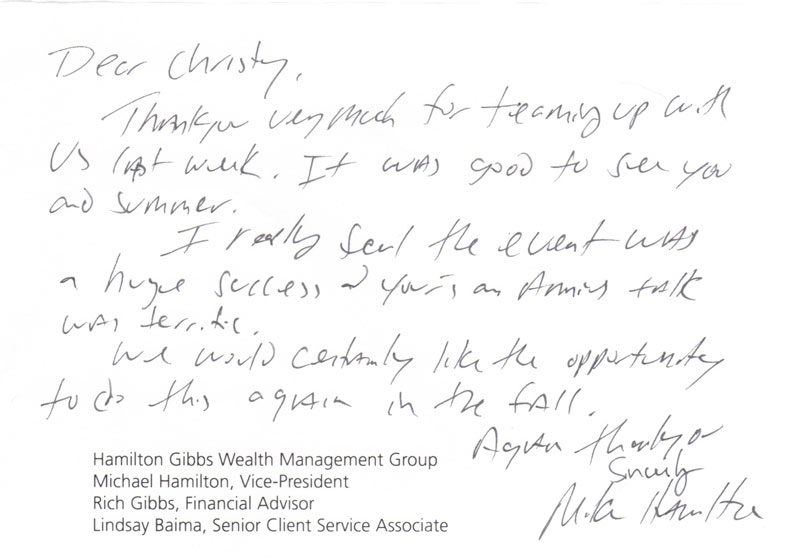 Dear Christy,
Thankyou very much for teaming up with
us last week. It was good to see you
and Summer.
I really feel the event was
a huge success & your's an talk
was terrific.
We would certainly like the opportunity
to do this again in the fall.
Again thankyou
Sincerely
Mike Hamilton
Hamilton Gibbs Wealth Management Group
Michael Hamilton, Vice-President
Rich Gibbs, Financial Advisor
Lindsay Baima, Senior Client Service Associate